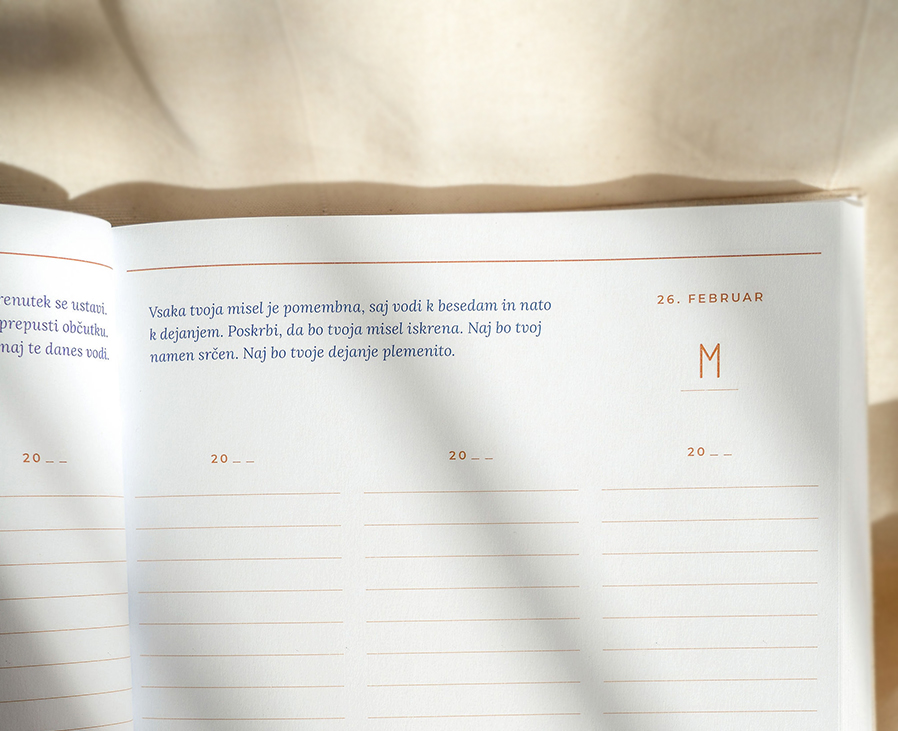 renutek se ustavi.
prepusti občutku.
naj te danes vodi.
20_ _
Vsaka tvoja misel je pomembna, saj vodi k besedam in nato
k dejanjem. Poskrbi, da bo tvoja misel iskrena. Naj bo tvoj
namen srčen. Naj bo tvoje dejanje plemenito.
26. FEBRUAR
M
20_ _
20_ _
20_ _